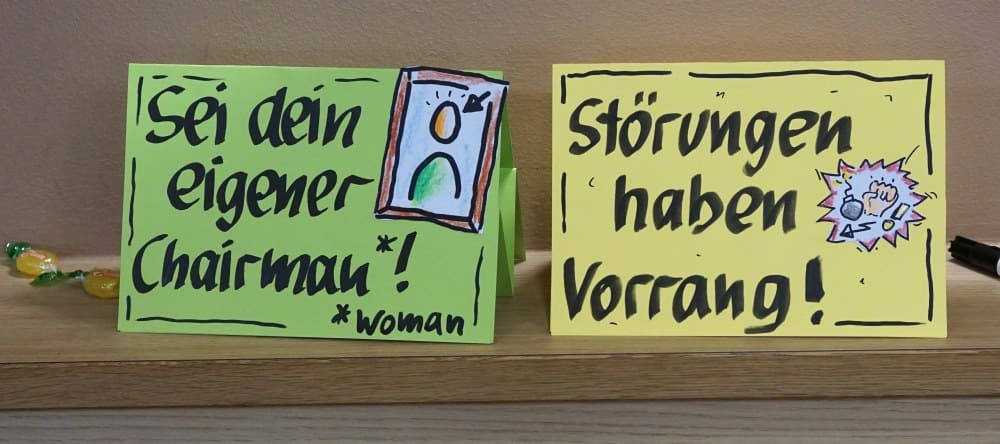 Sei dein
eigener
Chairman*!
*woman
Störungen
haben
Vorrang!